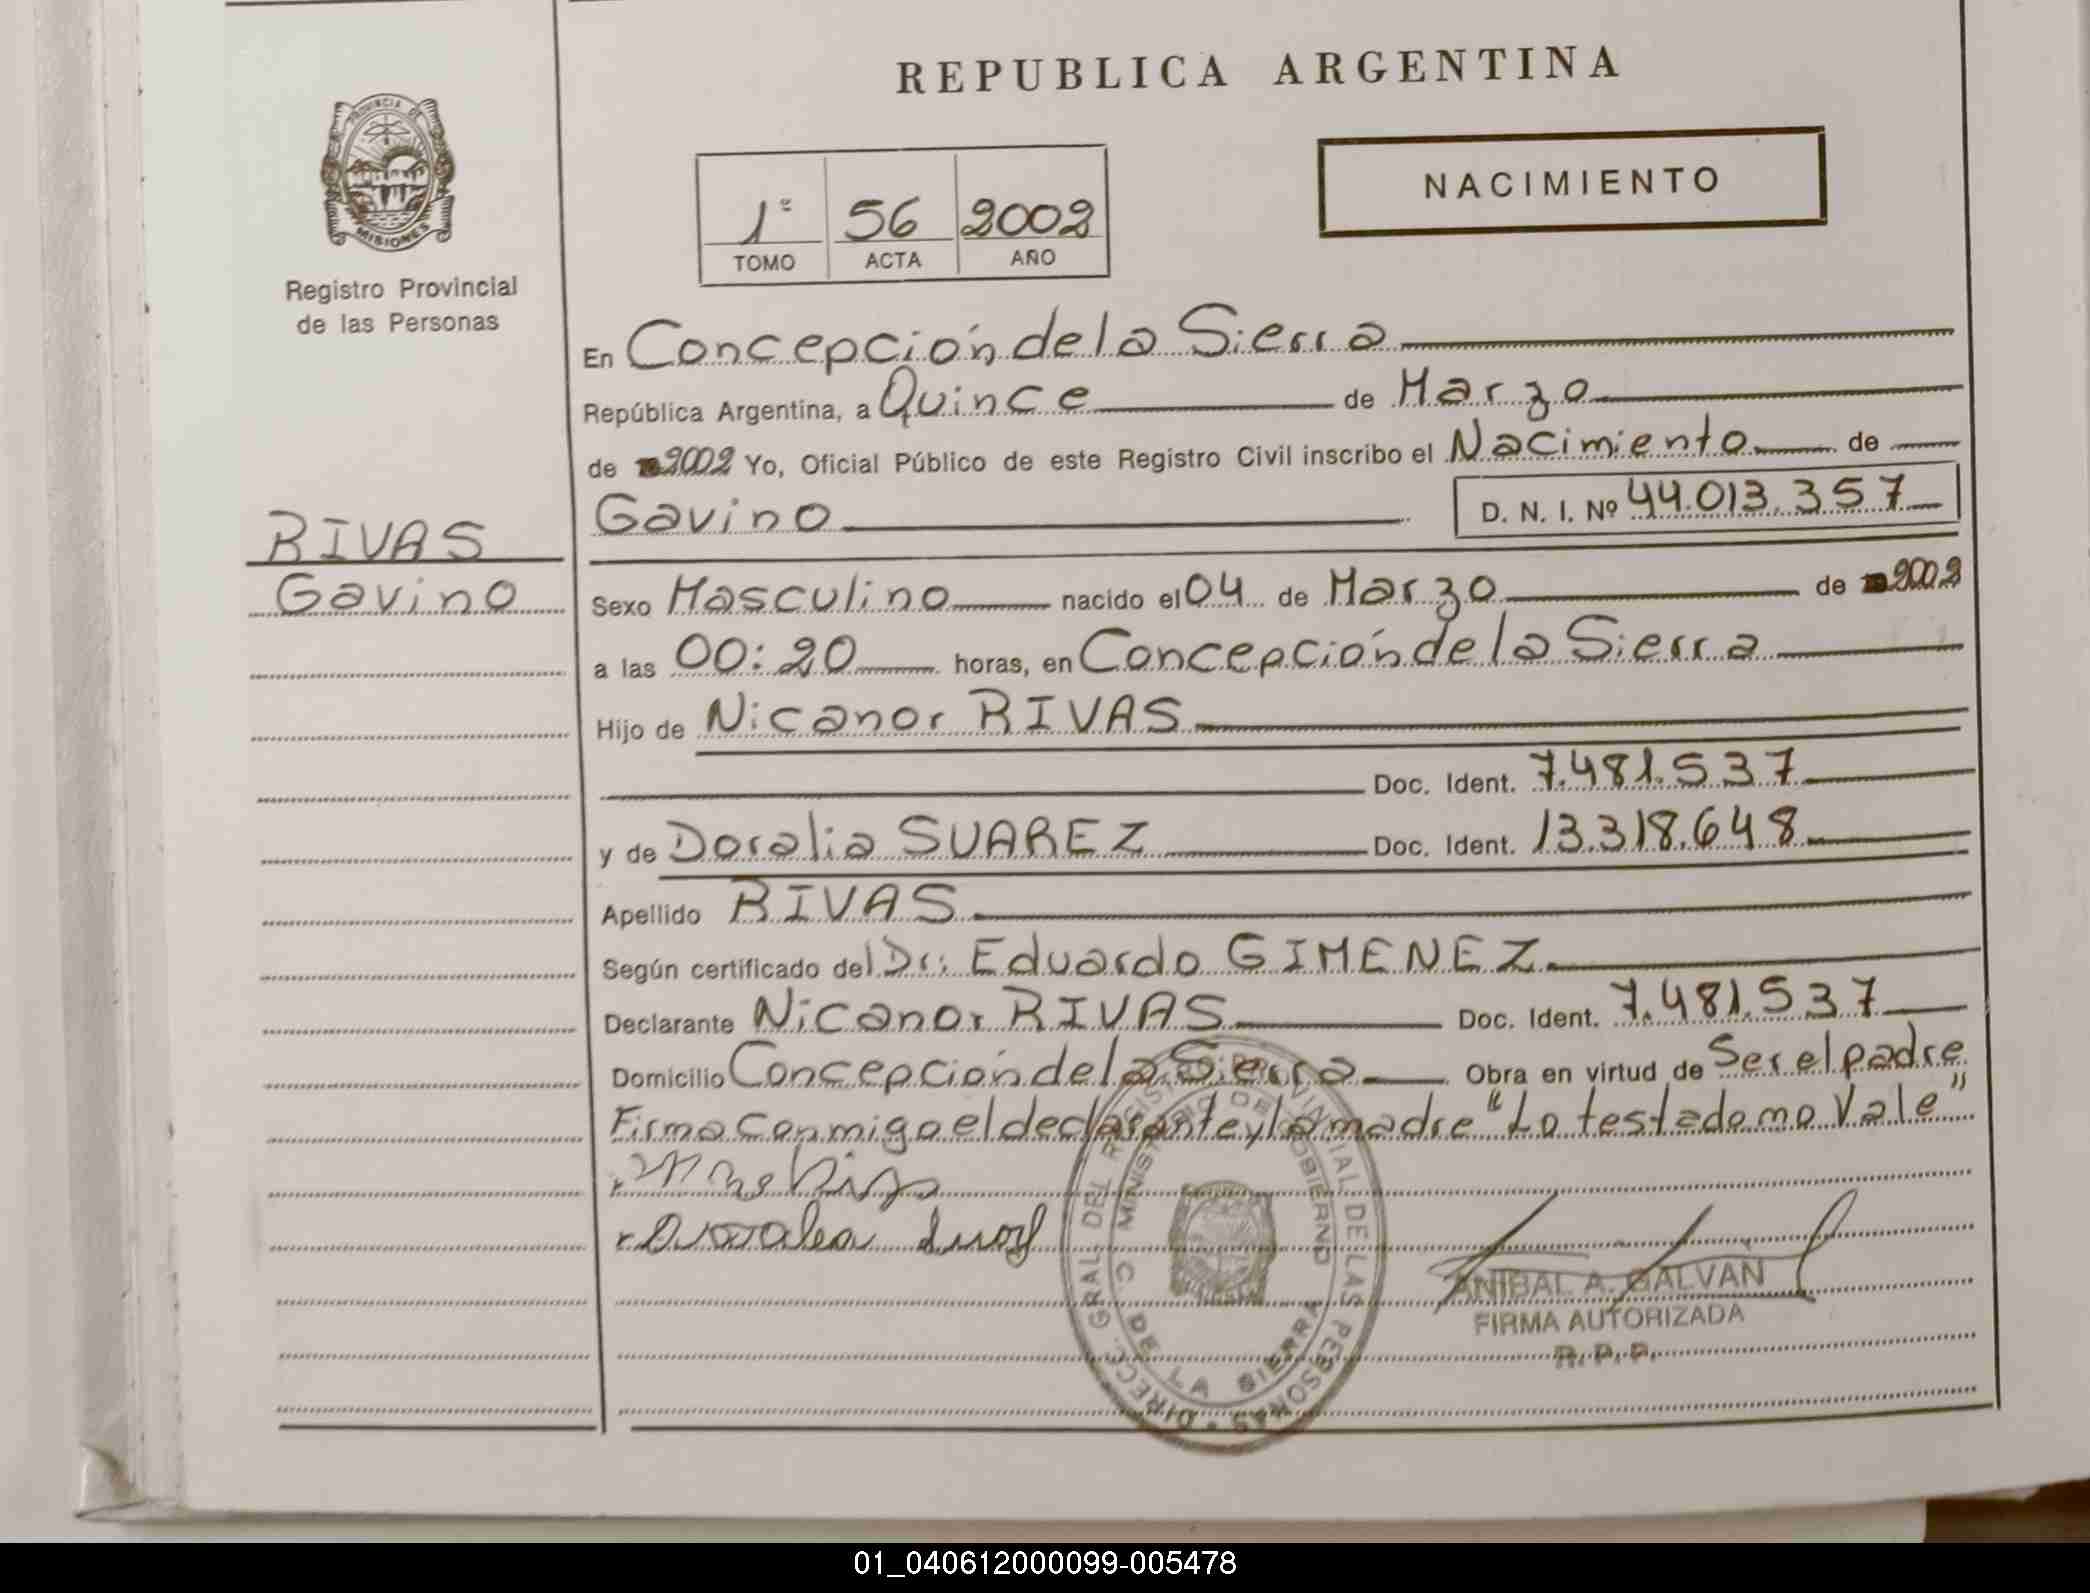 REPUBLICA ARGENTINA
PROVINCIA DE
MISIONES
Registro Provincial
de las Personas
1º 56 2002
TOMO ACTA AÑO
NACIMIENTO
En Concepción de la Sierra
República Argentina, a Quince de Marzo
de 2002 Yo, Oficial Público de este Registro Civil inscribo el Nacimiento de
Gavino D. N. I. Nº 44.013.357
RIVAS
Gavino
Sexo Masculino nacido el 04 de Marzo de 2002
a las 00:20 horas, en Concepción de la Sierra
Hijo de Nicanor RIVAS
Doc. Ident. 7.481.537
y de Doralia SUAREZ Doc. Ident. 13.318.648
Apellido RIVAS
Según certificado del Dr: Eduardo GIMENEZ
Declarante Nicanor RIVAS Doc. Ident. 7.481.537
Domicilio Concepción de la Sierra Obra en virtud de Ser el padre
Firma conmigo el declarante y la madre "Lo testado no Vale"
DIRECC. GRAL. DEL REGISTRO PROVINCIAL DE LAS PERSONAS
MINISTERIO DE GOBIERNO
C. DE LA SIERRA
ANIBAL A. GALVAN
FIRMA AUTORIZADA
R. P. P.
01_040612000099-005478